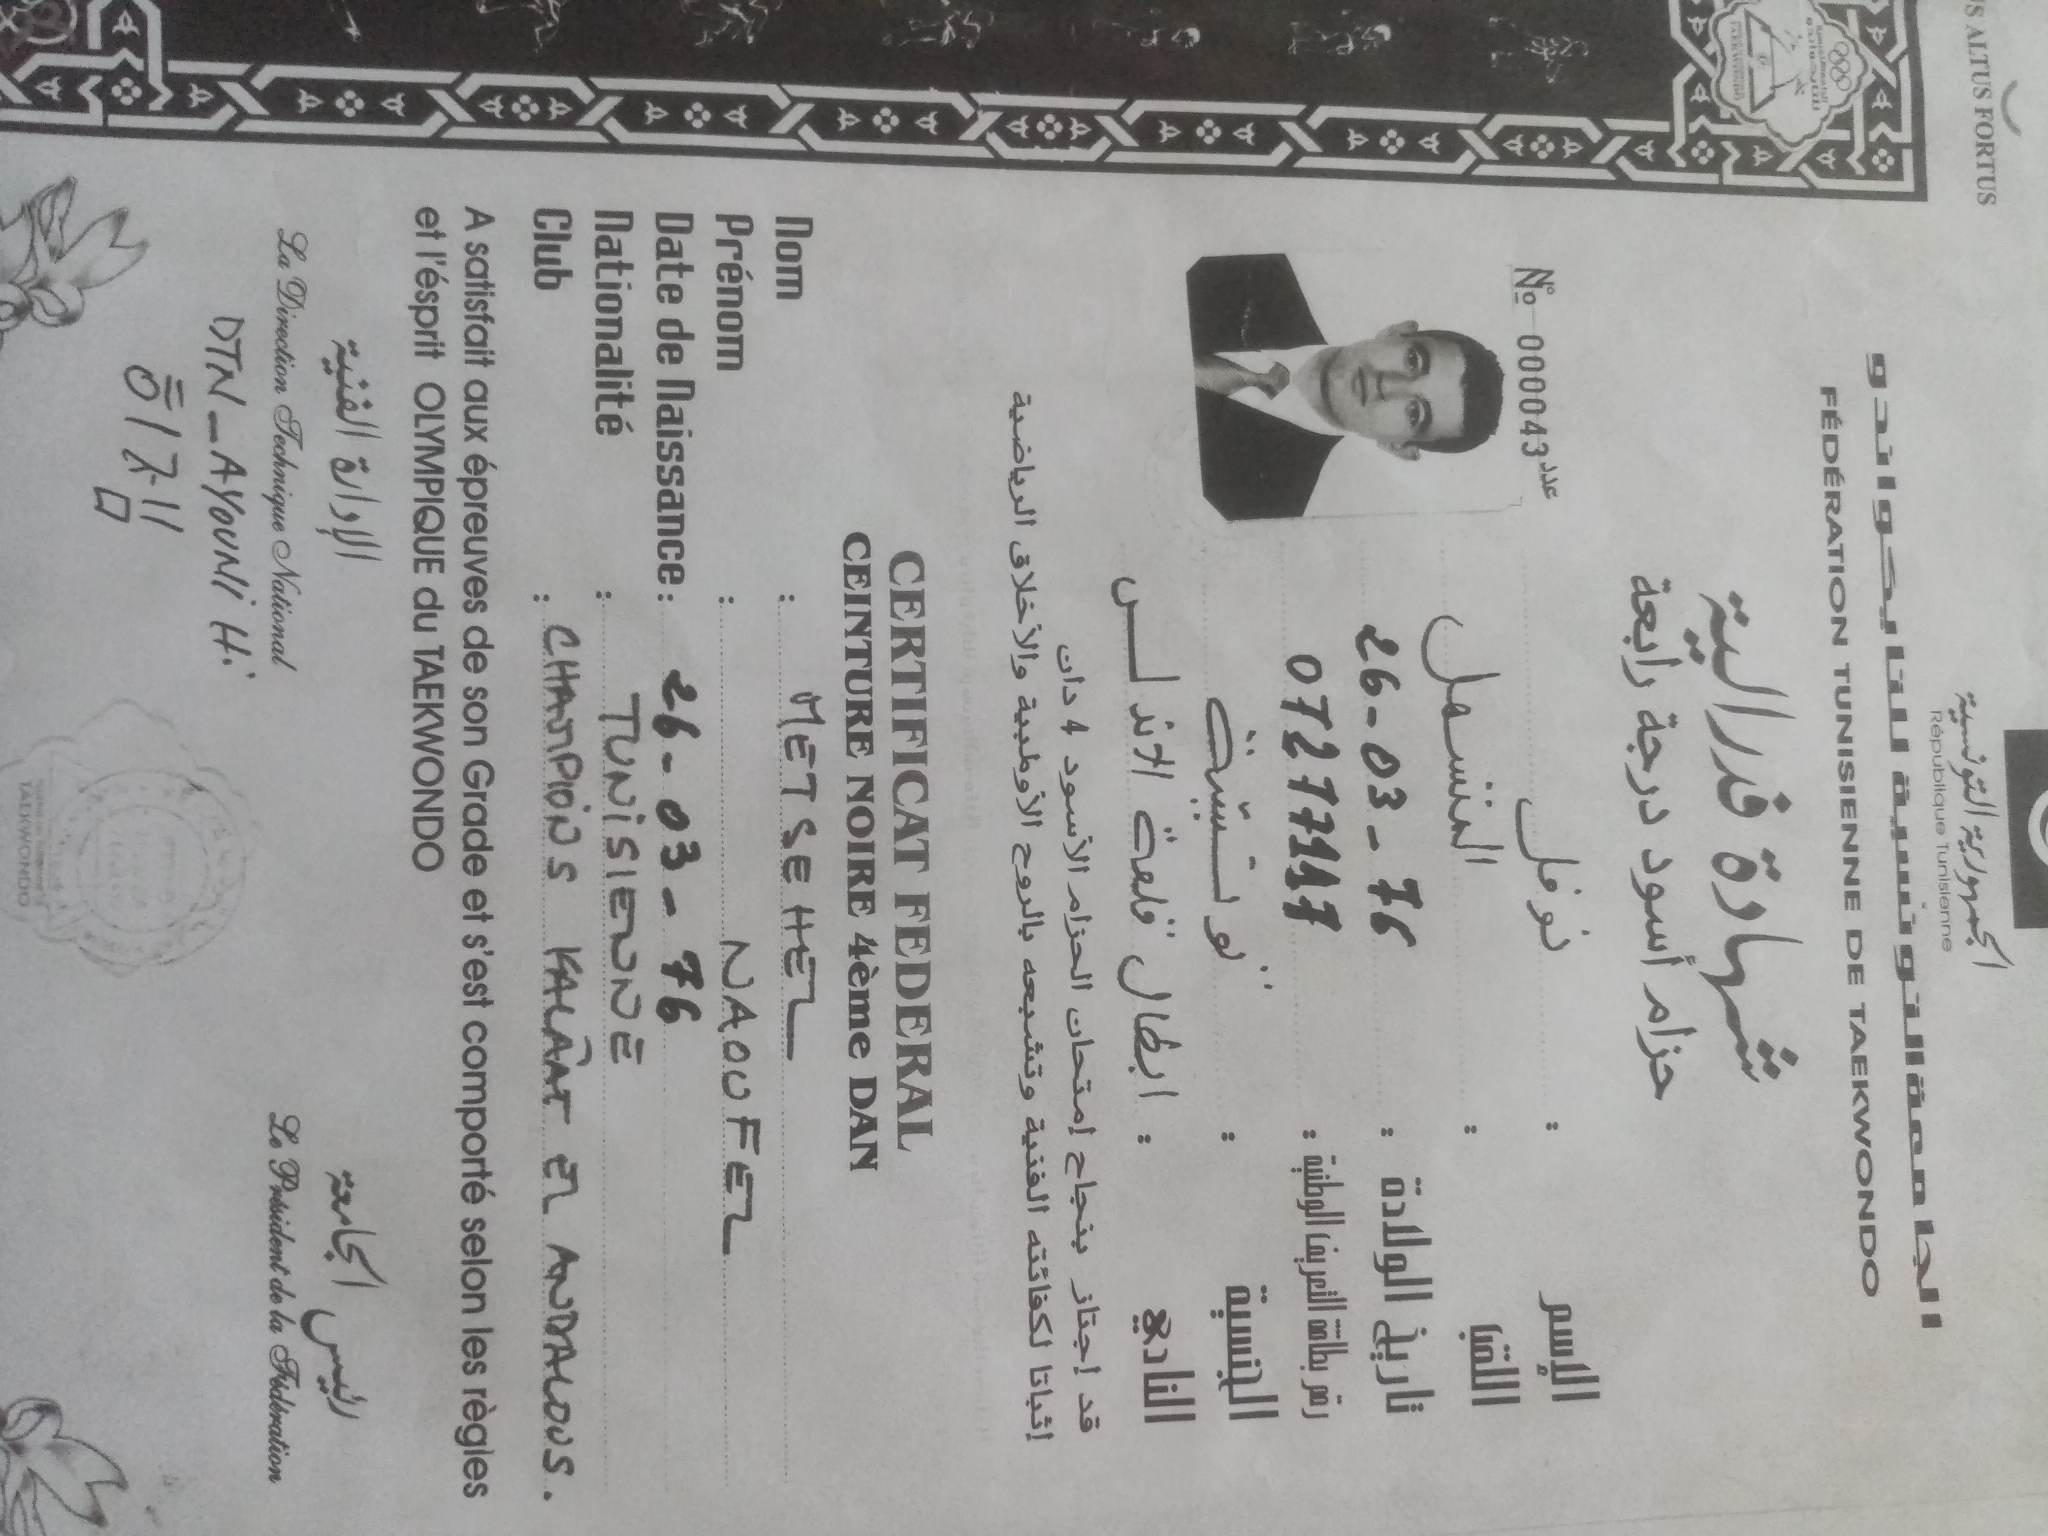 US ALTUS FORTUS
الجمهورية التونسية
République Tunisienne
الجامعة التونسية للتايكواندو
FÉDÉRATION TUNISIENNE DE TAEKWONDO
شهادة فدرالية
حزام أسود درجة رابعة
No 000043 عدد
الإسم : نوفل
اللقب :
تاريخ الولادة : 26-03-76
رقم بطاقة التعريف الوطنية :
الجنسية : تونسية
النادي : ابطال قلعة الاندلس
قد إجتاز بنجاح إمتحان الحزام الأسود 4 دان
إثباتا لكفائته الفنية وتشبعه بالروح الأولمبية والأخلاق الرياضية
CERTIFICAT FEDERAL
CEINTURE NOIRE 4ème DAN
Nom : METSEHEL
Prénom : NAOUFEL
Date de Naissance : 26-03-76
Nationalité : TUNISIENNE
Club : CHAMPIONS KALÂAT EL ANDALOUS.
A satisfait aux épreuves de son Grade et s'est comporté selon les règles
et l'ésprit OLYMPIQUE du TAEKWONDO
الإدارة الفنية
La Direction Technique National
رئيس الجامعة
Le Président de la Fédération
DTN_AYOUNI H.
TAEKWONDO